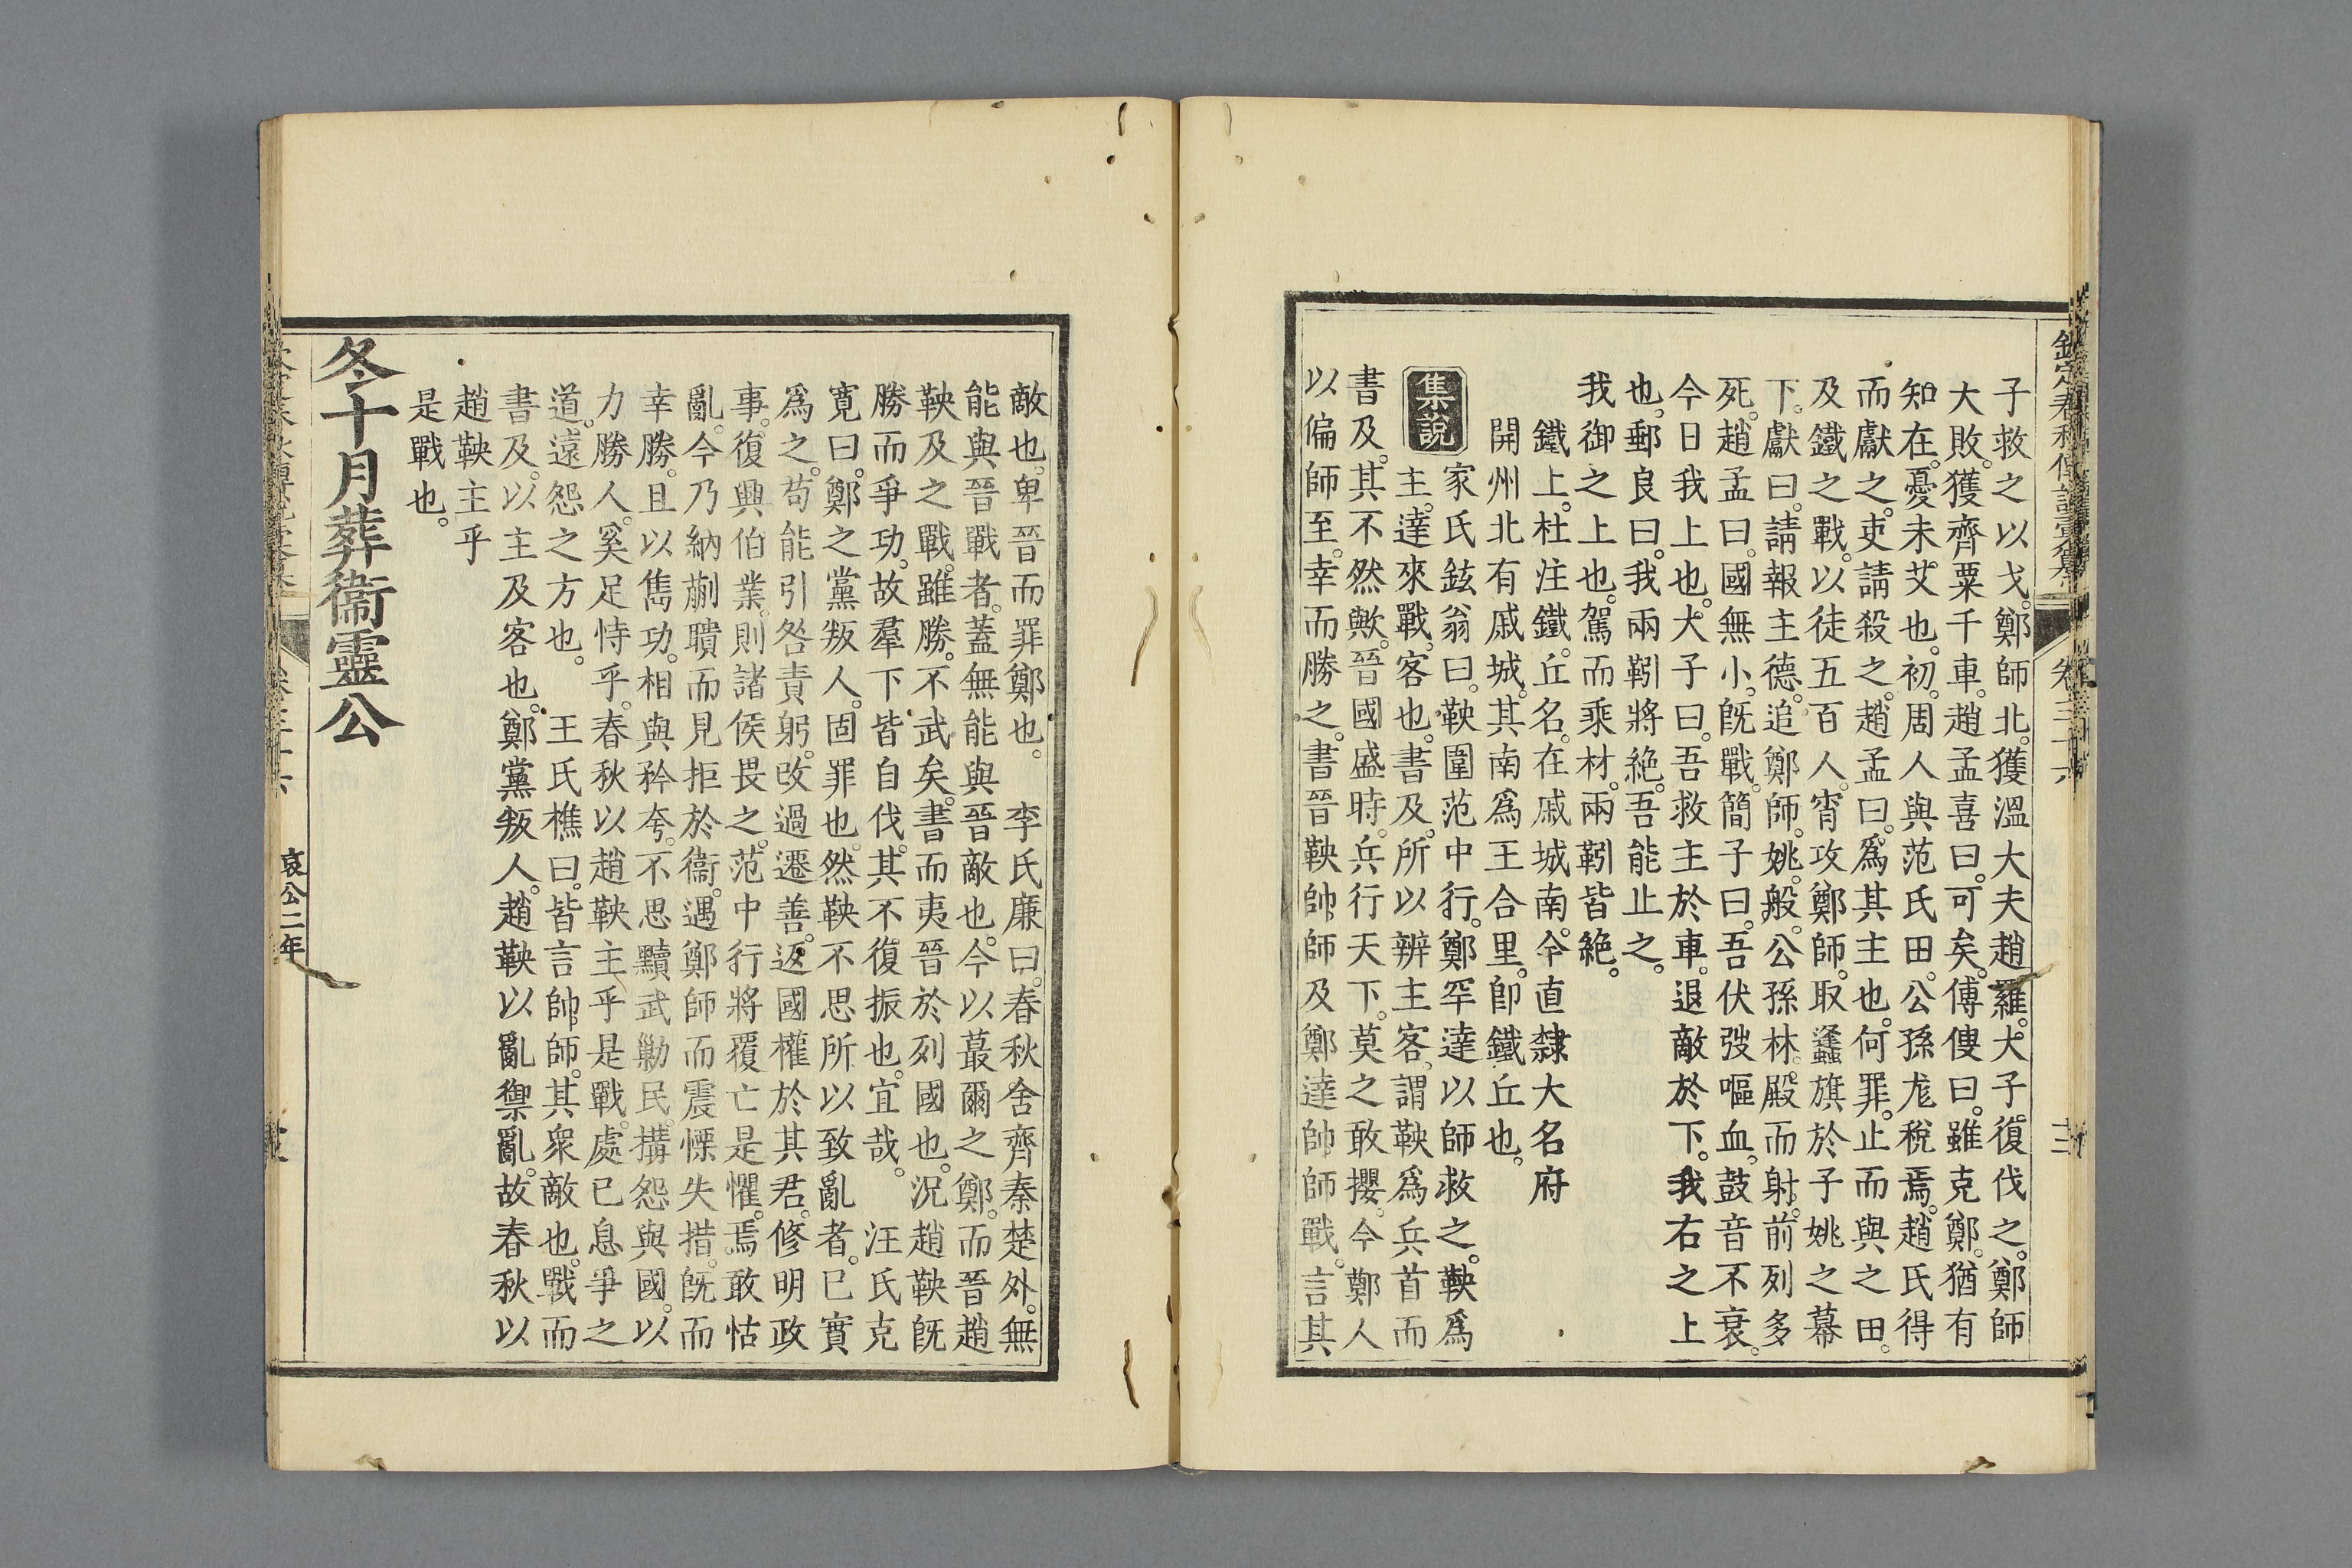 子救之以戈。鄭師北。獲溫大夫趙羅。大子復伐之。鄭師
大敗。獲齊粟千車。趙孟喜曰。可矣。傅傁曰。雖克鄭。猶有
知在。憂未艾也。初。周人與范氏田。公孫尨稅焉。趙氏得
而獻之。吏請殺之。趙孟曰。爲其主也。何罪。止而與之田。
及鐵之戰。以徒五百人。宵攻鄭師。取蠭旗於子姚之幕
下。獻曰。請報主德。追鄭師。姚。般。公孫林。殿而射。前列多
死。趙孟曰。國無小。旣戰。簡子曰。吾伏弢嘔血。鼓音不衰。
今日我上也。大子曰。吾救主於車。退敵於下。我右之上
也。郵良曰。我兩靷將絕。吾能止之。
我御之上也。駕而乘材。兩靷皆絕。
鐵上。杜注。鐵。丘名。在戚城南。今直隸大名府
開州北有戚城。其南爲王合里。卽鐵丘也。
集說
家氏鉉翁曰。鞅圍范中行。鄭罕達以師救之。鞅爲
主。達來戰。客也。書及。所以辨主客。謂鞅爲兵首而
書及。其不然歟。晉國盛時。兵行天下。莫之敢攖。今鄭人
以偏師至。幸而勝之。書晉鞅帥師及鄭達帥師戰。言其
卷三十六
敵也。卑晉而罪鄭也。　李氏廉曰。春秋舍齊秦楚外。無
能與晉戰者。蓋無能與晉敵也。今以蕞爾之鄭。而晉趙
鞅及之戰。雖勝。不武矣。書而夷晉於列國也。況趙鞅旣
勝而爭功。故羣下皆自伐。其不復振也。宜哉。　汪氏克
寬曰。鄭之黨叛人。固罪也。然鞅不思所以致亂者。巳實
爲之。苟能引咎責躬。改過遷善。返國權於其君。修明政
事。復興伯業。則諸侯畏之。范中行將覆亡是懼。焉敢怙
亂。今乃納蒯聵而見拒於衞。遇鄭師而震慄失措。旣而
幸勝。且以雋功。相與矜夸。不思黷武勦民。搆怨與國。以
力勝人。奚足恃乎。春秋以趙鞅主乎是戰。處已息爭之
道。遠怨之方也。　王氏樵曰。皆言帥師。其衆敵也。戰而
書及。以主及客也。鄭黨叛人。趙鞅以亂禦亂。故春秋以
趙鞅主乎
是戰也。
冬十月葬衞靈公
哀公二年